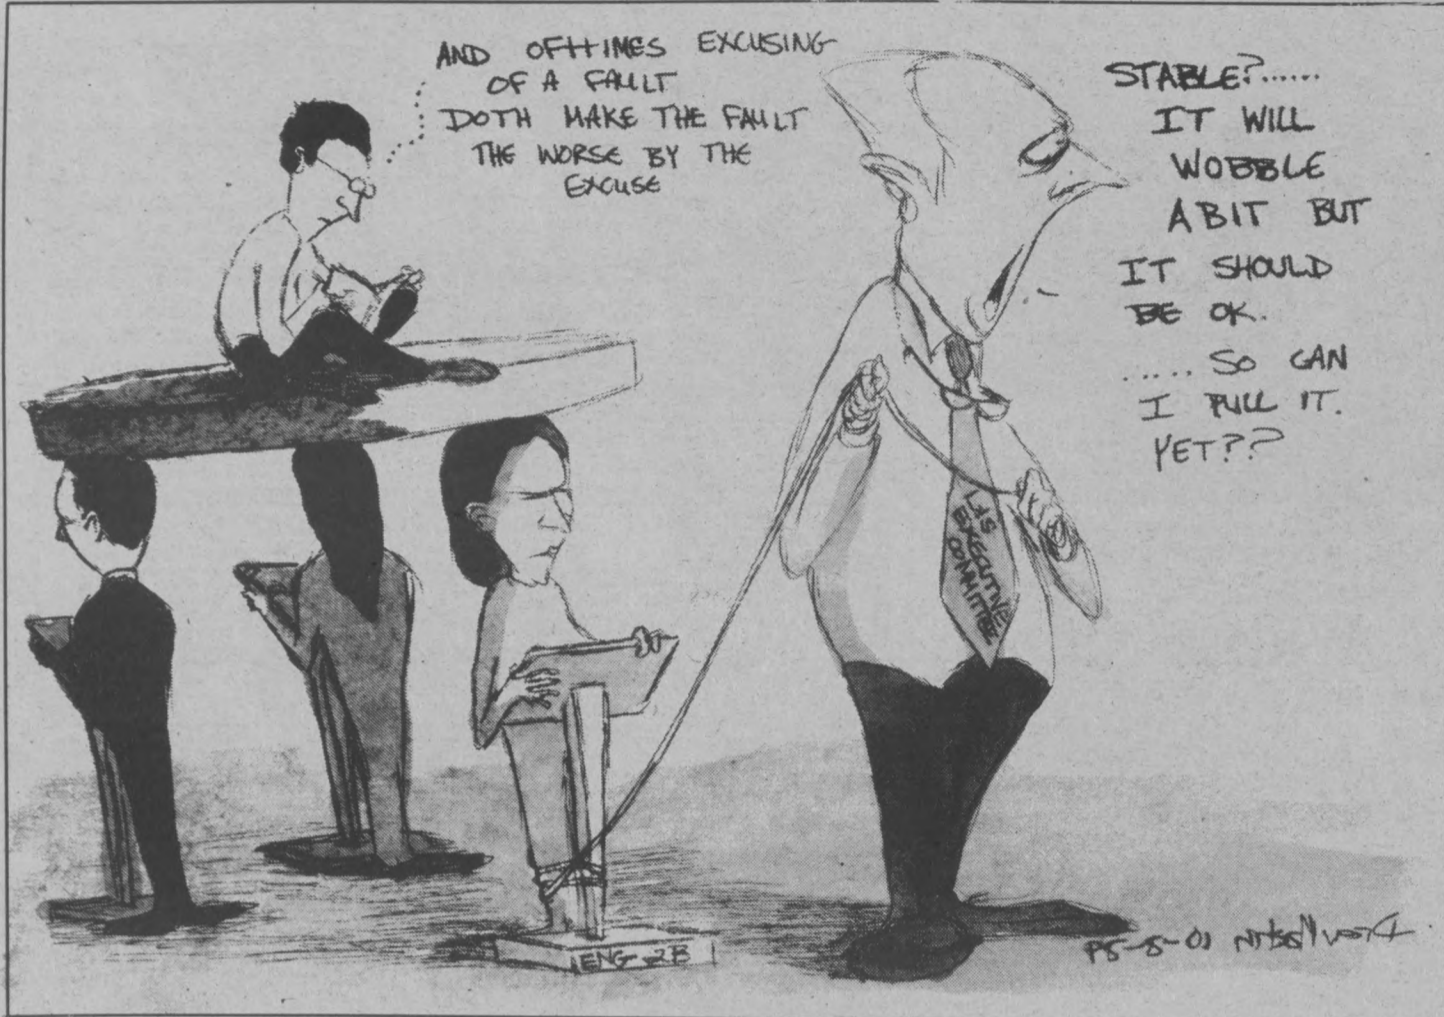 AND OFTTIMES EXCUSING
OF A FAULT
DOTH MAKE THE FAULT
THE WORSE BY THE
EXCUSE
STABLE?......
IT WILL
WOBBLE
A BIT BUT
IT SHOULD
BE OK.
..... SO CAN
I PULL IT.
YET??
L&S
EXECUTIVE
COMMITTEE
ENG 2B